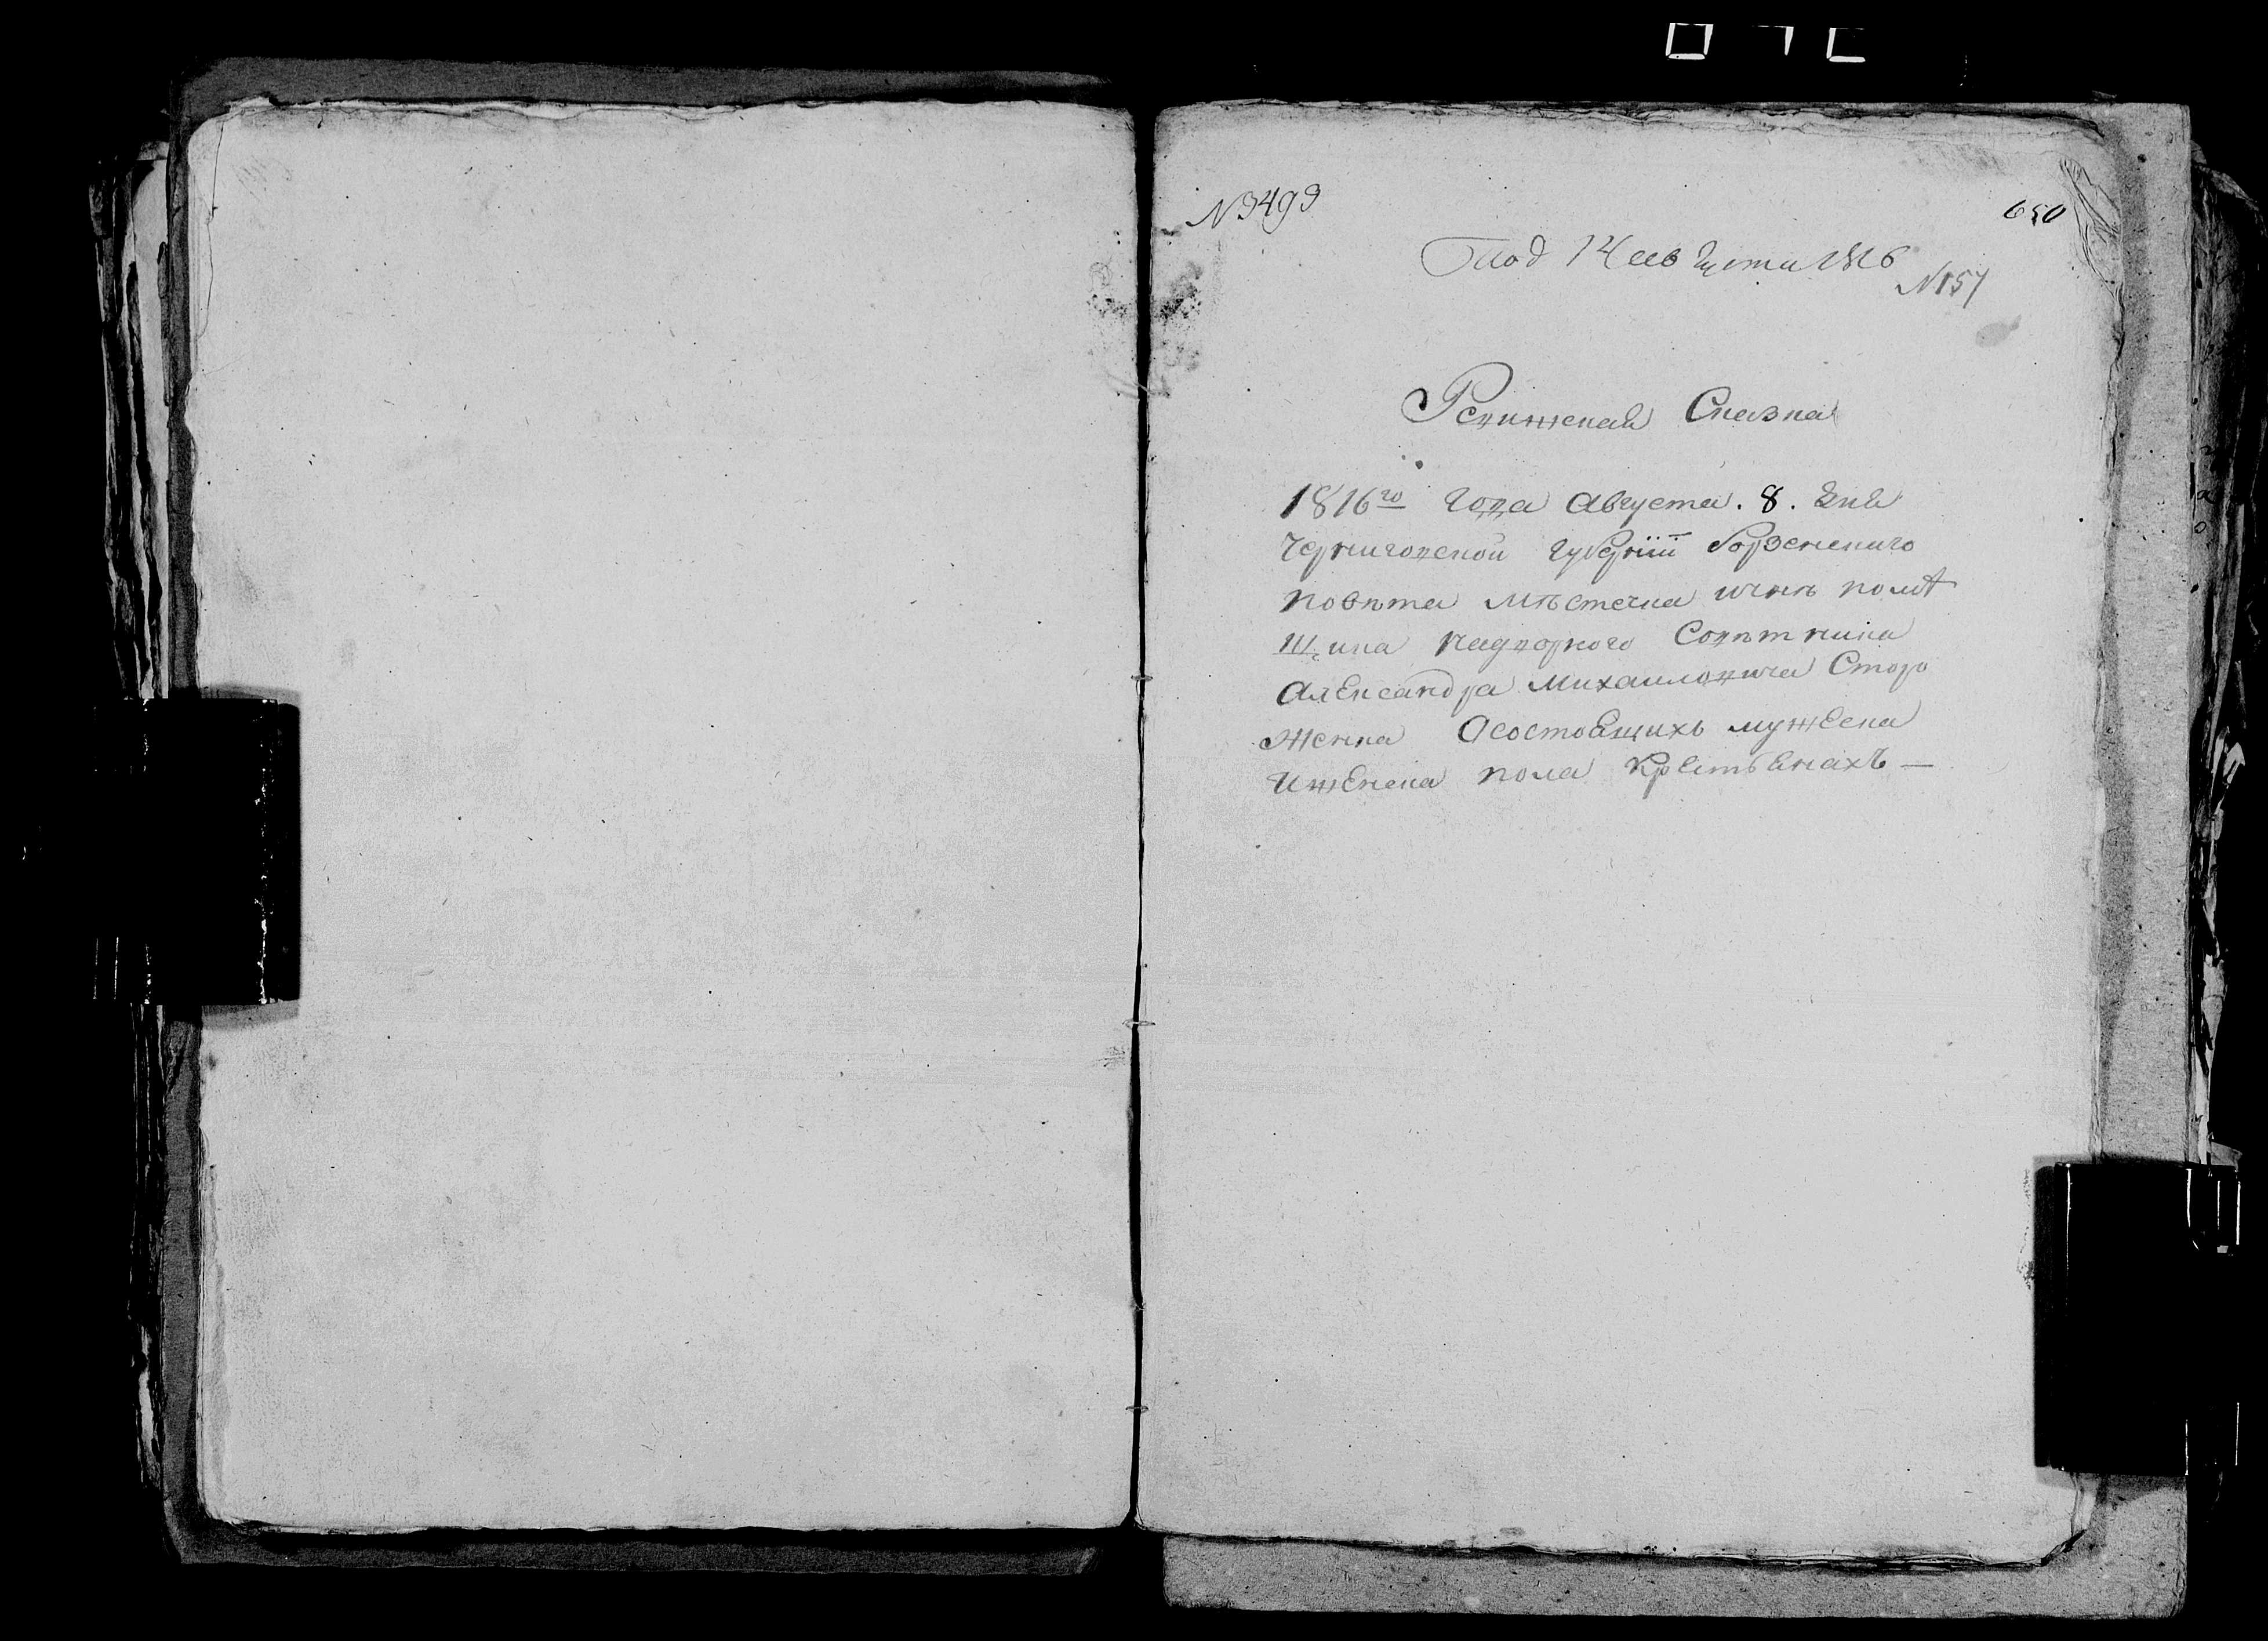 N3499
650
Под 14 августа 1816
N157
Ревижская Сказка
1816го года августа. 8. дня
Черниговской губернїи борзенскаго
повѣта мѣстечка ични помѣ
щика надворного Совѣтника
александра михаиловича Сторо
женка осостоящихъ мужеска
иженска пола крестьянахъ —